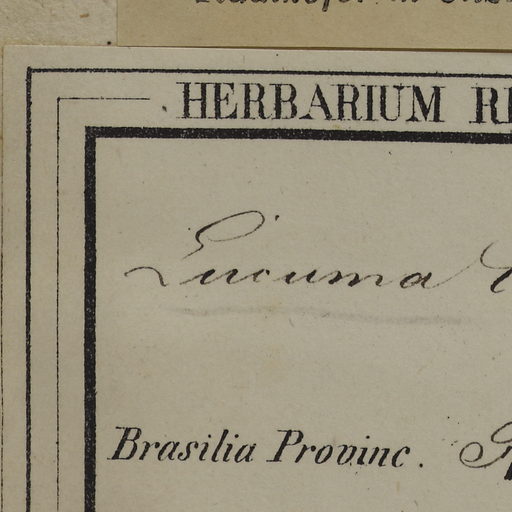 HERBARIUM
Lucuma
Brasilia Provinc.